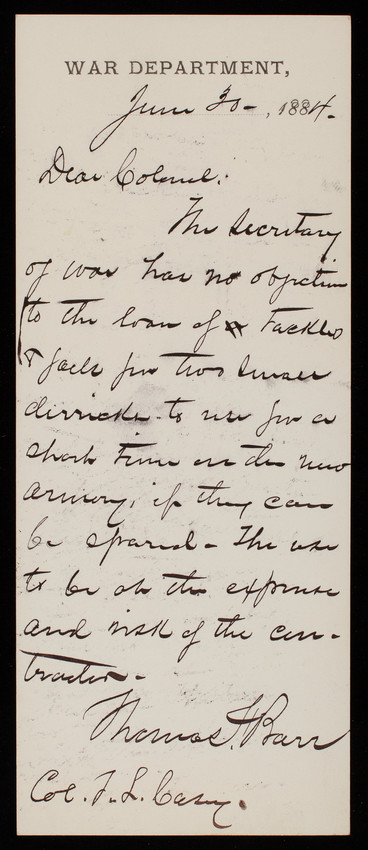 WAR DEPARTMENT,
June 30 - , 1884.
Dear Colonel:
The Secretary
of War has no objection
to the loan of tackles
& falls for two small
derricks to use for a
short time on the new
armory, if they can
be spared - The use
to be at the expense
and risk of the con-
tractor -
Thomas F. Barr
Col. T. L. Casey.